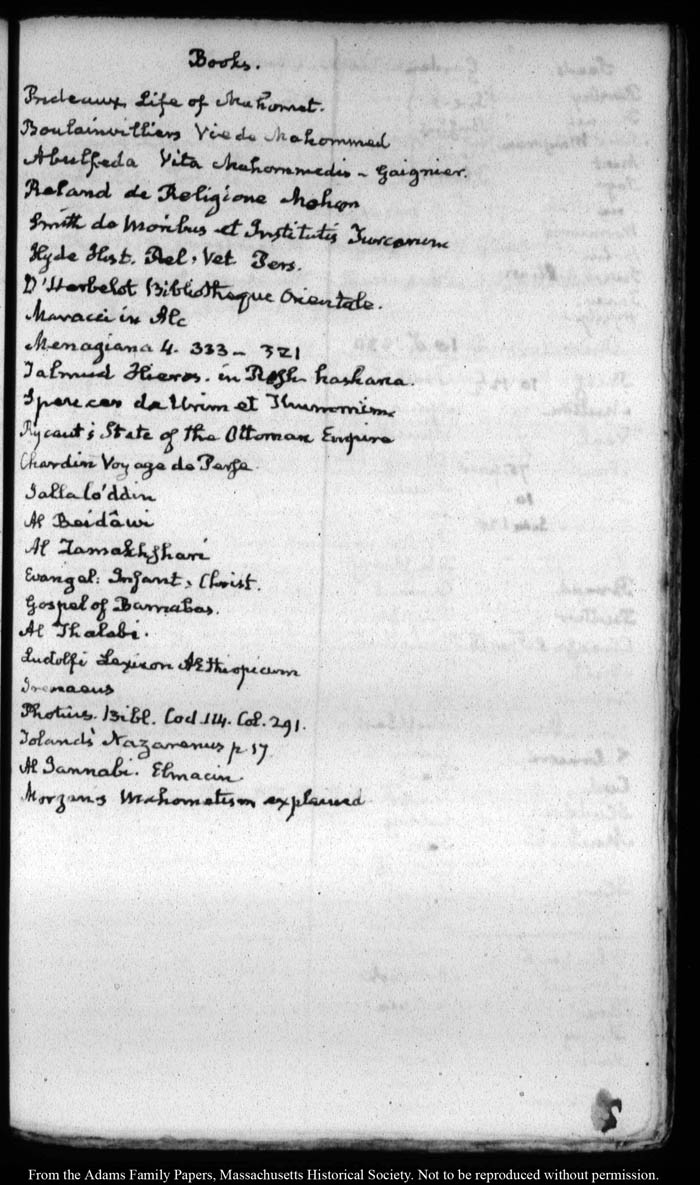 Books.
Prideaux Life of Mahomet.
Boulainvilliers Vie de Mahommed
Abulfeda Vita Mahommedis - Gaignier.
Reland de Religione Mohom
Smith de Moribus et Institutis Turcarum
Hyde Hist. Rel. Vet Pers.
D'Herbelot Bibliotheque Orientale.
Maracci in Alc
Menagiana 4. 333 - 321
Talmud Hieros. in Rosh hashana.
Spencer de Urim et Thummim
Rycaut's State of the Ottoman Empire
Chardin Voyage de Perse
Jallalo'ddin
Al Beidâwi
Al Zamakhshari
Evangel: Infant, Christ.
Gospel of Barnabas.
Al Thalabi.
Ludolfi Lexicon AEthiopicum
Irenaeus
Photius. Bibl. Cod 114. Col. 291.
Toland's Nazarenus p. 17.
Al Jannabi. Elmacin
Morgan's Mahometism explained
From the Adams Family Papers, Massachusetts Historical Society. Not to be reproduced without permission.